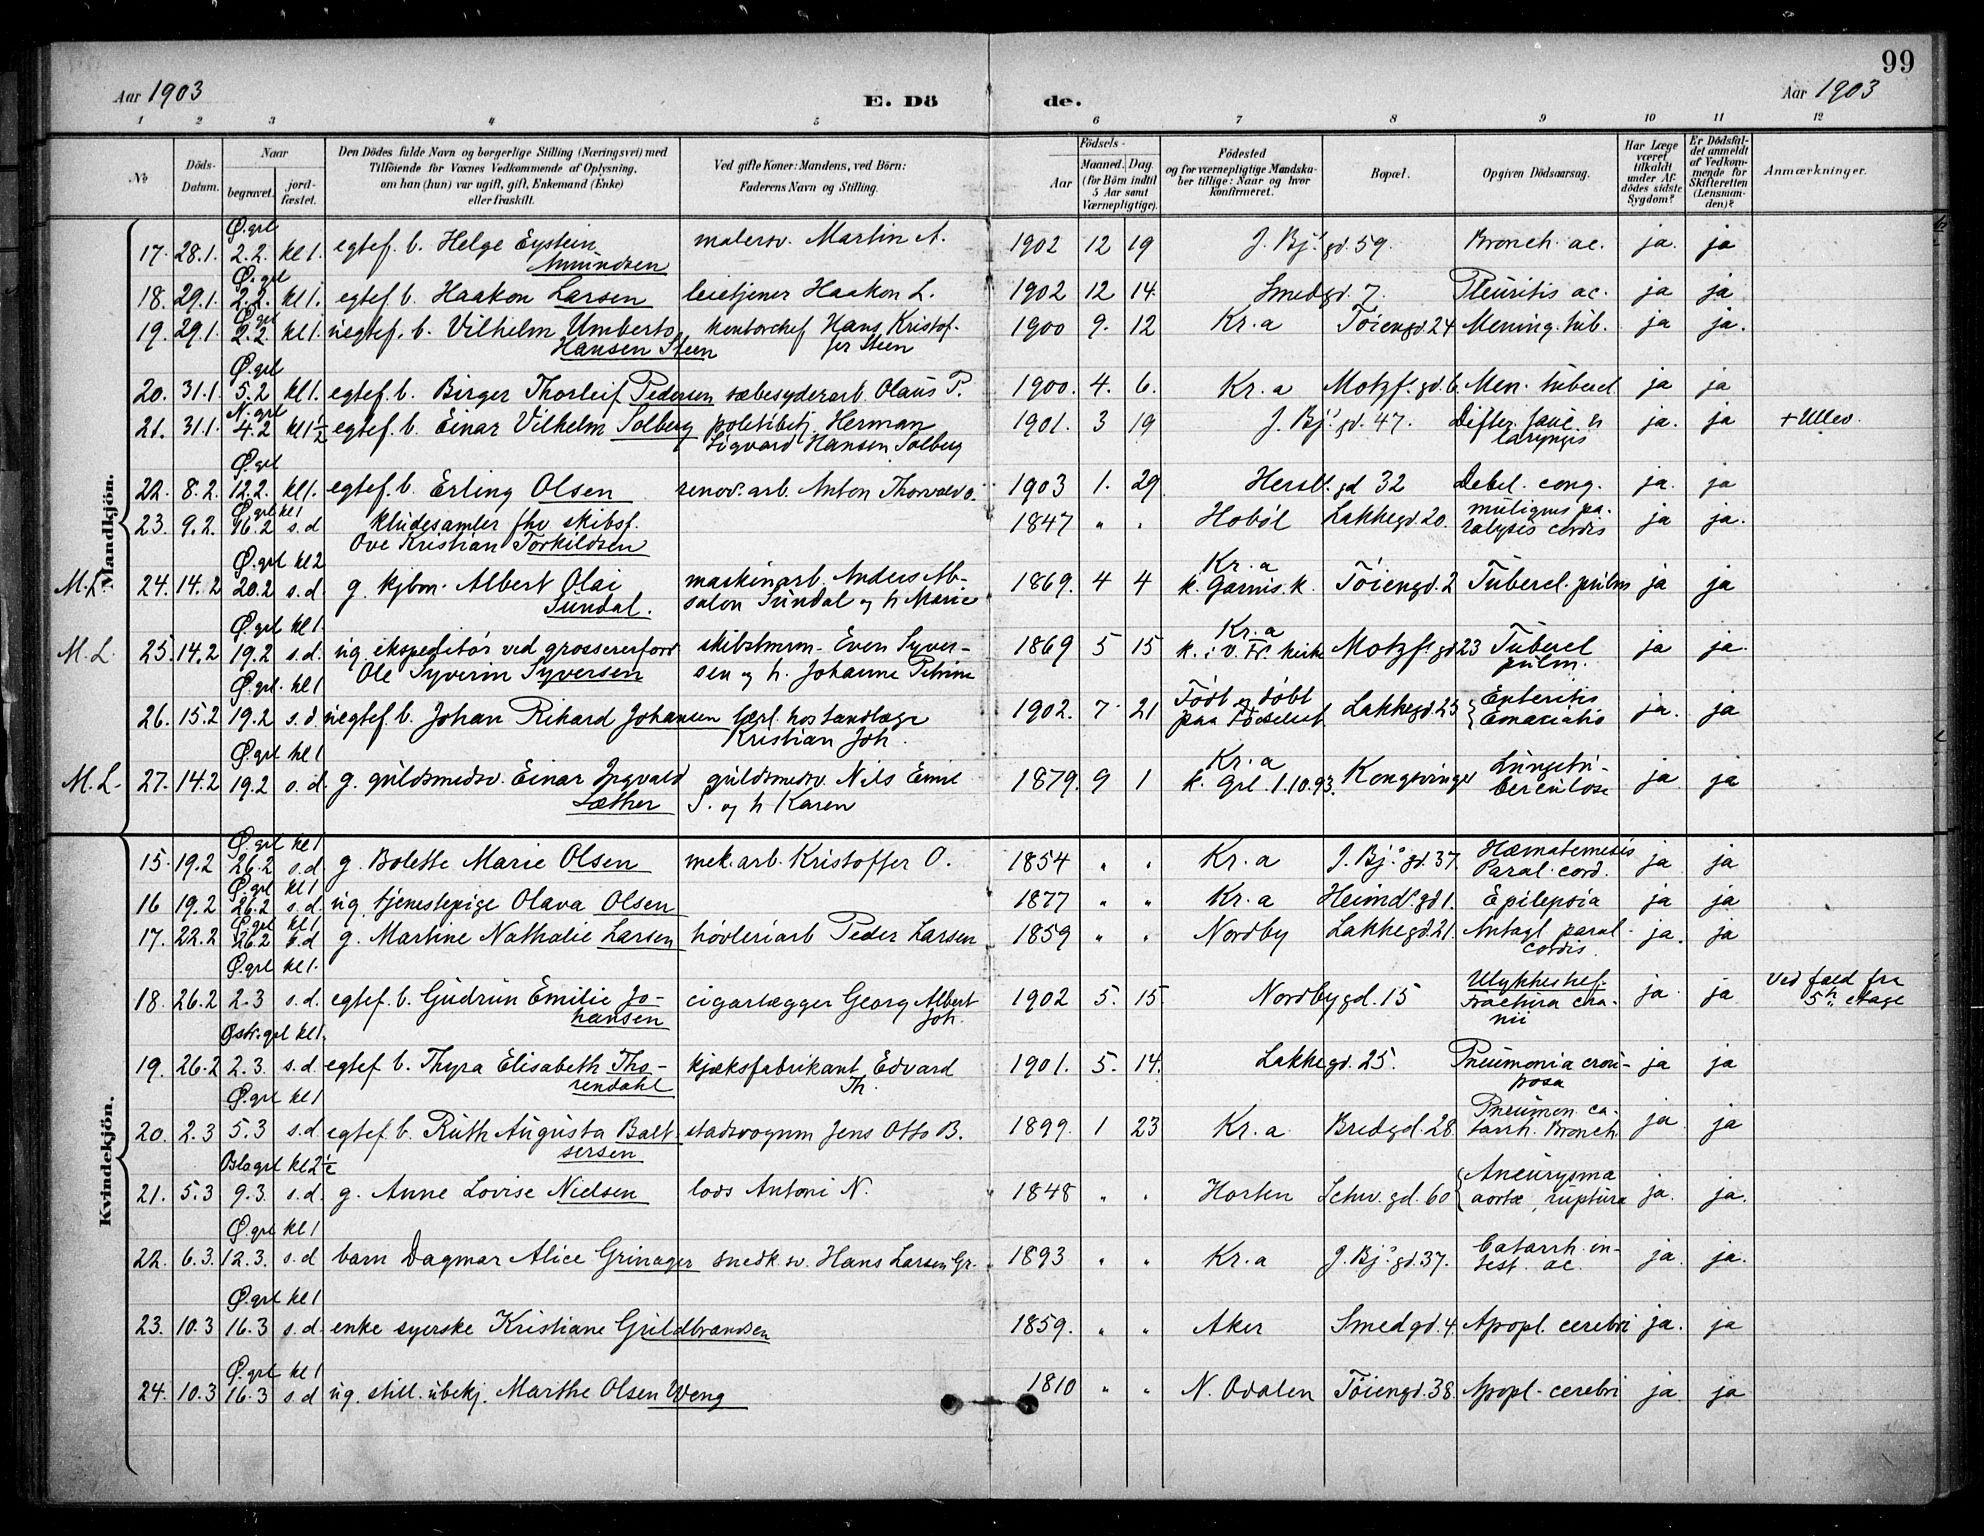 99
Aar 1903
E. Dö de.
Aar 1903
1 2 3 4 5 6 7 8 9 10 11 12
No
Döds-Datum.
Naar
begravet.
jord-fæstet.
Den Dödes fulde Navn og borgerlige Stilling (Næringsvei) med
Tilföiende for Voxnes Vedkommende af Oplysning,
om han (hun) var ugift, gift, Enkemand (Enke)
eller fraskilt.
Ved gifte Koner: Mandens, ved Börn:
Faderens Navn og Stilling.
Födsels-
Aar
Maaned. Dag.
(for Börn indtil
5 Aar samt
Værnepligtige).
Födested
og for værnepligtige Mandska-
ber tillige: Naar og hvor
konfirmeret.
Bopæl.
Opgiven Dödsaarsag.
Har Læge
været
tilkaldt
under Af-
dödes sidste
Sygdom?
Er Dödsfal-
det anmeldt
af Vedkom-
mende for
Skifteretten
(Lensman-
den)?
Anmærkninger.
Mandkjön.
Ø.grl
17. 28.1. 2.2. kl 1. egtef. b. Helge Eystein malersv. Martin A. 1902 12 19 J. Bj.s gd. 59. Bronch. ac. ja. ja
Amundsen
Ø.grl
18. 29.1. 2.2. kl 1. egtef. b. Haakon Larsen leietjener Haakon L. 1902 12 14. Smedgd. 7. Pleuritis ac. ja ja
Ø.grl
19. 29.1. 2.2. kl 1. uegtef. b. Vilhelm Umberto kontorchef Hans Kristof- 1900 9. 12 Kr.a Töiengd. 24 Mening. tub. ja ja.
Hansen Steen fer Steen
Ø.grl
20. 31.1 5.2 kl 1. egtef. b. Birger Thorleif Pedersen sæbesyderarb. Olaus P. 1900. 4. 6. Kr.a Motzf. gd. 6. Men. tubercl ja ja
N.grl
21. 31.1. 4.2 kl 1½ egtef. b. Einar Vilhelm Solberg politibtj. Herman 1901. 3 19 J. Bj.s gd. 47. Difter. fauc. es ja. ja + Ullev.
Sigvard Hansen Solberg laryngis
Ø.grl
22. 8.2. 12.2. kl 1. egtef. b. Erling Olsen renov. arb. Anton Thorvald O. 1903 1. 29 Hersl. gd 32 Debel. cong. ja. ja
Ø.grl kl 1
23. 9.2. 16.2 s.d kludesamler fhv skibsf. 1847 " " Hoböl Lakkegd. 20. muligens pa- ja ja.
Ove Kristian Torkildsen ralysis cordis
Ø.grl kl 2
M.L. 24. 14.2 20.2 s.d. g. kjbm. Albert Olai maskinarb. Anders Ab- 1869. 4 4 Kr.a Töiengd. 2 Tubercl. pulm ja ja
Sundal. salon Sundal og h Marie k. Garnis. k.
Ø.grl kl 1.
M.L. 25. 14.2 19.2 s.d. ug ekspeditör ved grossererforr. skibstmm. Even Syver- 1869 5 15 Kr.a Motzf. gd 23 Tubercl ja ja.
Ole Syverin Syversen sen og h. Johanne Petrine k. i V. Fr. kirke pulm.
Ø.grl. kl 1
26. 15.2 19.2 s.d. uegtef. b. Johan Rikard Johansen lærl. hos tandlæge 1902. 7. 21 Födt og döbt Lakkegd. 25 Enteritis ja. ja
Kristian Joh. paa Födselsst Emaciatio
Ø.grl kl 1
M.L. 27. 14.2 19.2 s.d. g. guldsmedsv. Einar Ingvald guldsmedsv. Nils Emil 1879. 9 1 Kr.a Kongsvinger Lungetu- ja. ja
Sæther S. og h Karen k. Grl 1.10.93. berculose
Kvindekjön.
Ø.grl kl 1
15. 19.2 26.2 s.d g. Bolette Marie Olsen mek. arb. Kristoffer O. 1854 " " Kr.a J. Bj.s gd. 37. Hæmatemesis ja ja
Paral. cord.
Ø.grl kl 1
16 19.2 26.2 s.d. ug. tjenestepige Olava Olsen 1877 " " Kr.a Heimd. gd 1. Epilepsia ja ja
Ø.grl kl 1
17. 22.2 26.2 s.d g. Martine Nathalie Larsen hövleriarb Peder Larsen 1859 " " Nordby Lakkegd. 21. Antagl paral. ja. ja
cordis.
Ø.grl kl 1.
18. 26.2 2.3 s.d. egtef. b. Gudrun Emilie Jo- cigarlægger Georg Albert 1902 5. 15. Nordbygd. 15 Ulykkestilf. ja. ja Ved fald fra
hansen Joh. Fractura cra- 5te etage
nii
Østr.grl kl 1.
19. 26.2 2.3. s.d egtef b. Thyra Elisabeth Tho- kjæksfabrikant Edvard 1901. 5. 14. Lakkegd. 25. Pneumonia crou- ja ja
rendahl Th. posa
Ø.grl kl 1
20. 2.3 5.3 s.d egtef. b. Ruth Augusta Balt- stadsvognm Jens Otto B. 1899. 1 23 Kr.a Bredgd. 28. Pneumon. ca- ja. ja
sersen tarrh. Bronch
Bl.agrl kl 2½
21. 5.3 9.3. s.d. g. Anne Lovise Nielsen lods Antoni N. 1848 " " Horten Schw. gd. 60 Aneurysma ja. ja.
aortæ, ruptura
Ø.grl kl 1
22. 6.3. 12.3. s.d barn Dagmar Alice Grinager snedk. sv. Hans Larsen Gr. 1893 " " Kr.a J. Bj.s gd. 37. Catarrh. in- ja. ja.
test. ac.
Ø.grl kl 1
23. 10.3 16.3 s.d. enke syerske Kristiane Guldbrandsen 1859. " " Aker Smedgd. 4. Apopl. cerebri ja. ja
Ø.grl kl 1
24. 10.3 16.3 s.d ug. still. ubekj. Marthe Olsen Weng 1810 " " N. Odalen Töiengd. 38. Apopl. cerebri ja ja